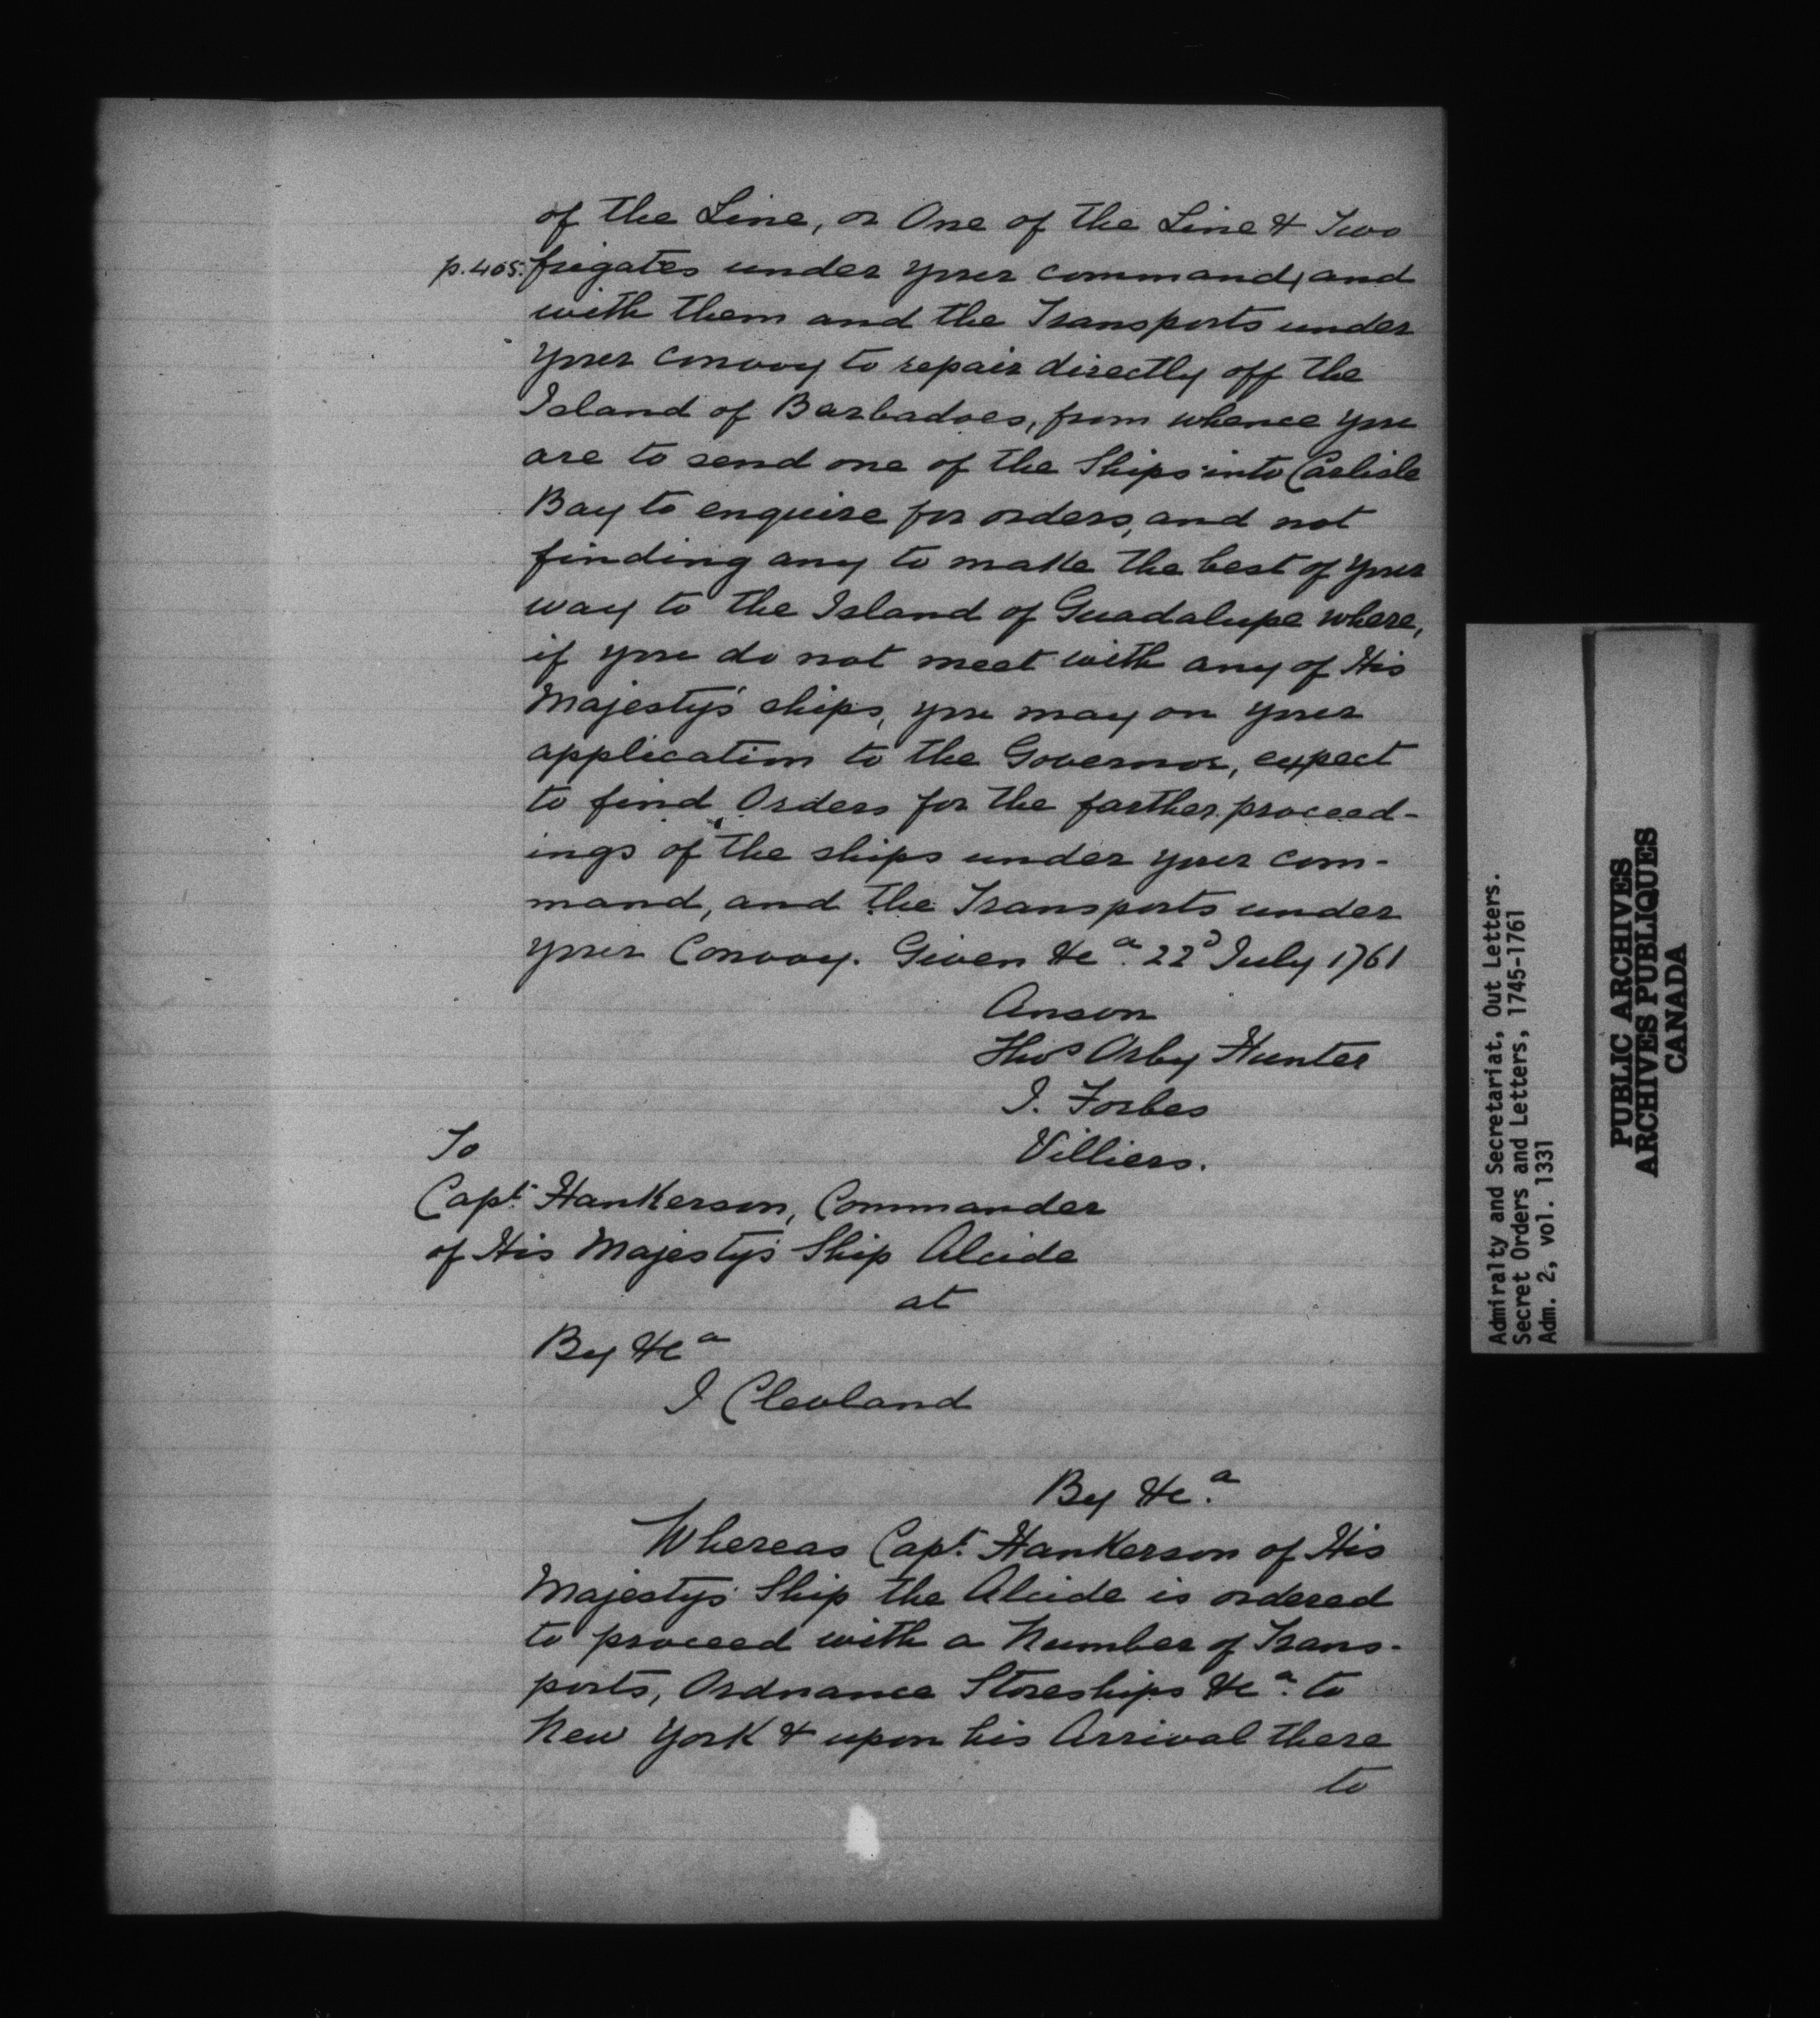 of the Line, or One of the Line & Two
p. 405. frigates under your command, and
with them and the Transports under
your convoy to repair directly off the
Island of Barbadoes, from whence you
are to send one of the Ships into Carlisle
Bay to enquire for orders, and not
finding any to make the best of your
way to the Island of Guadalupe where,
if you do not meet with any of His
Majesty's ships, you may on your
application to the Governor, expect
to find Orders for the farther proceed-
ings of the ships under your com-
mand, and the Transports under
your Convoy. Given &cª. 22ᵈ July 1761
Anson
Thoˢ Orby Hunter
J. Forbes
To
Villiers.
Capᵗ. Hankerson, Commander
of His Majesty's Ship Alcide
at
By &cª
J Clevland
By &c.ª
Whereas Capᵗ. Hankerson of His
Majesty's Ship the Alcide is ordered
to proceed with a Number of Trans-
ports, Ordnance Storeships &cª. to
New York & upon his Arrival there
to
Admiralty and Secretariat, Out Letters.
Secret Orders and Letters, 1745-1761
Adm. 2, vol. 1331
PUBLIC ARCHIVES
ARCHIVES PUBLIQUES
CANADA